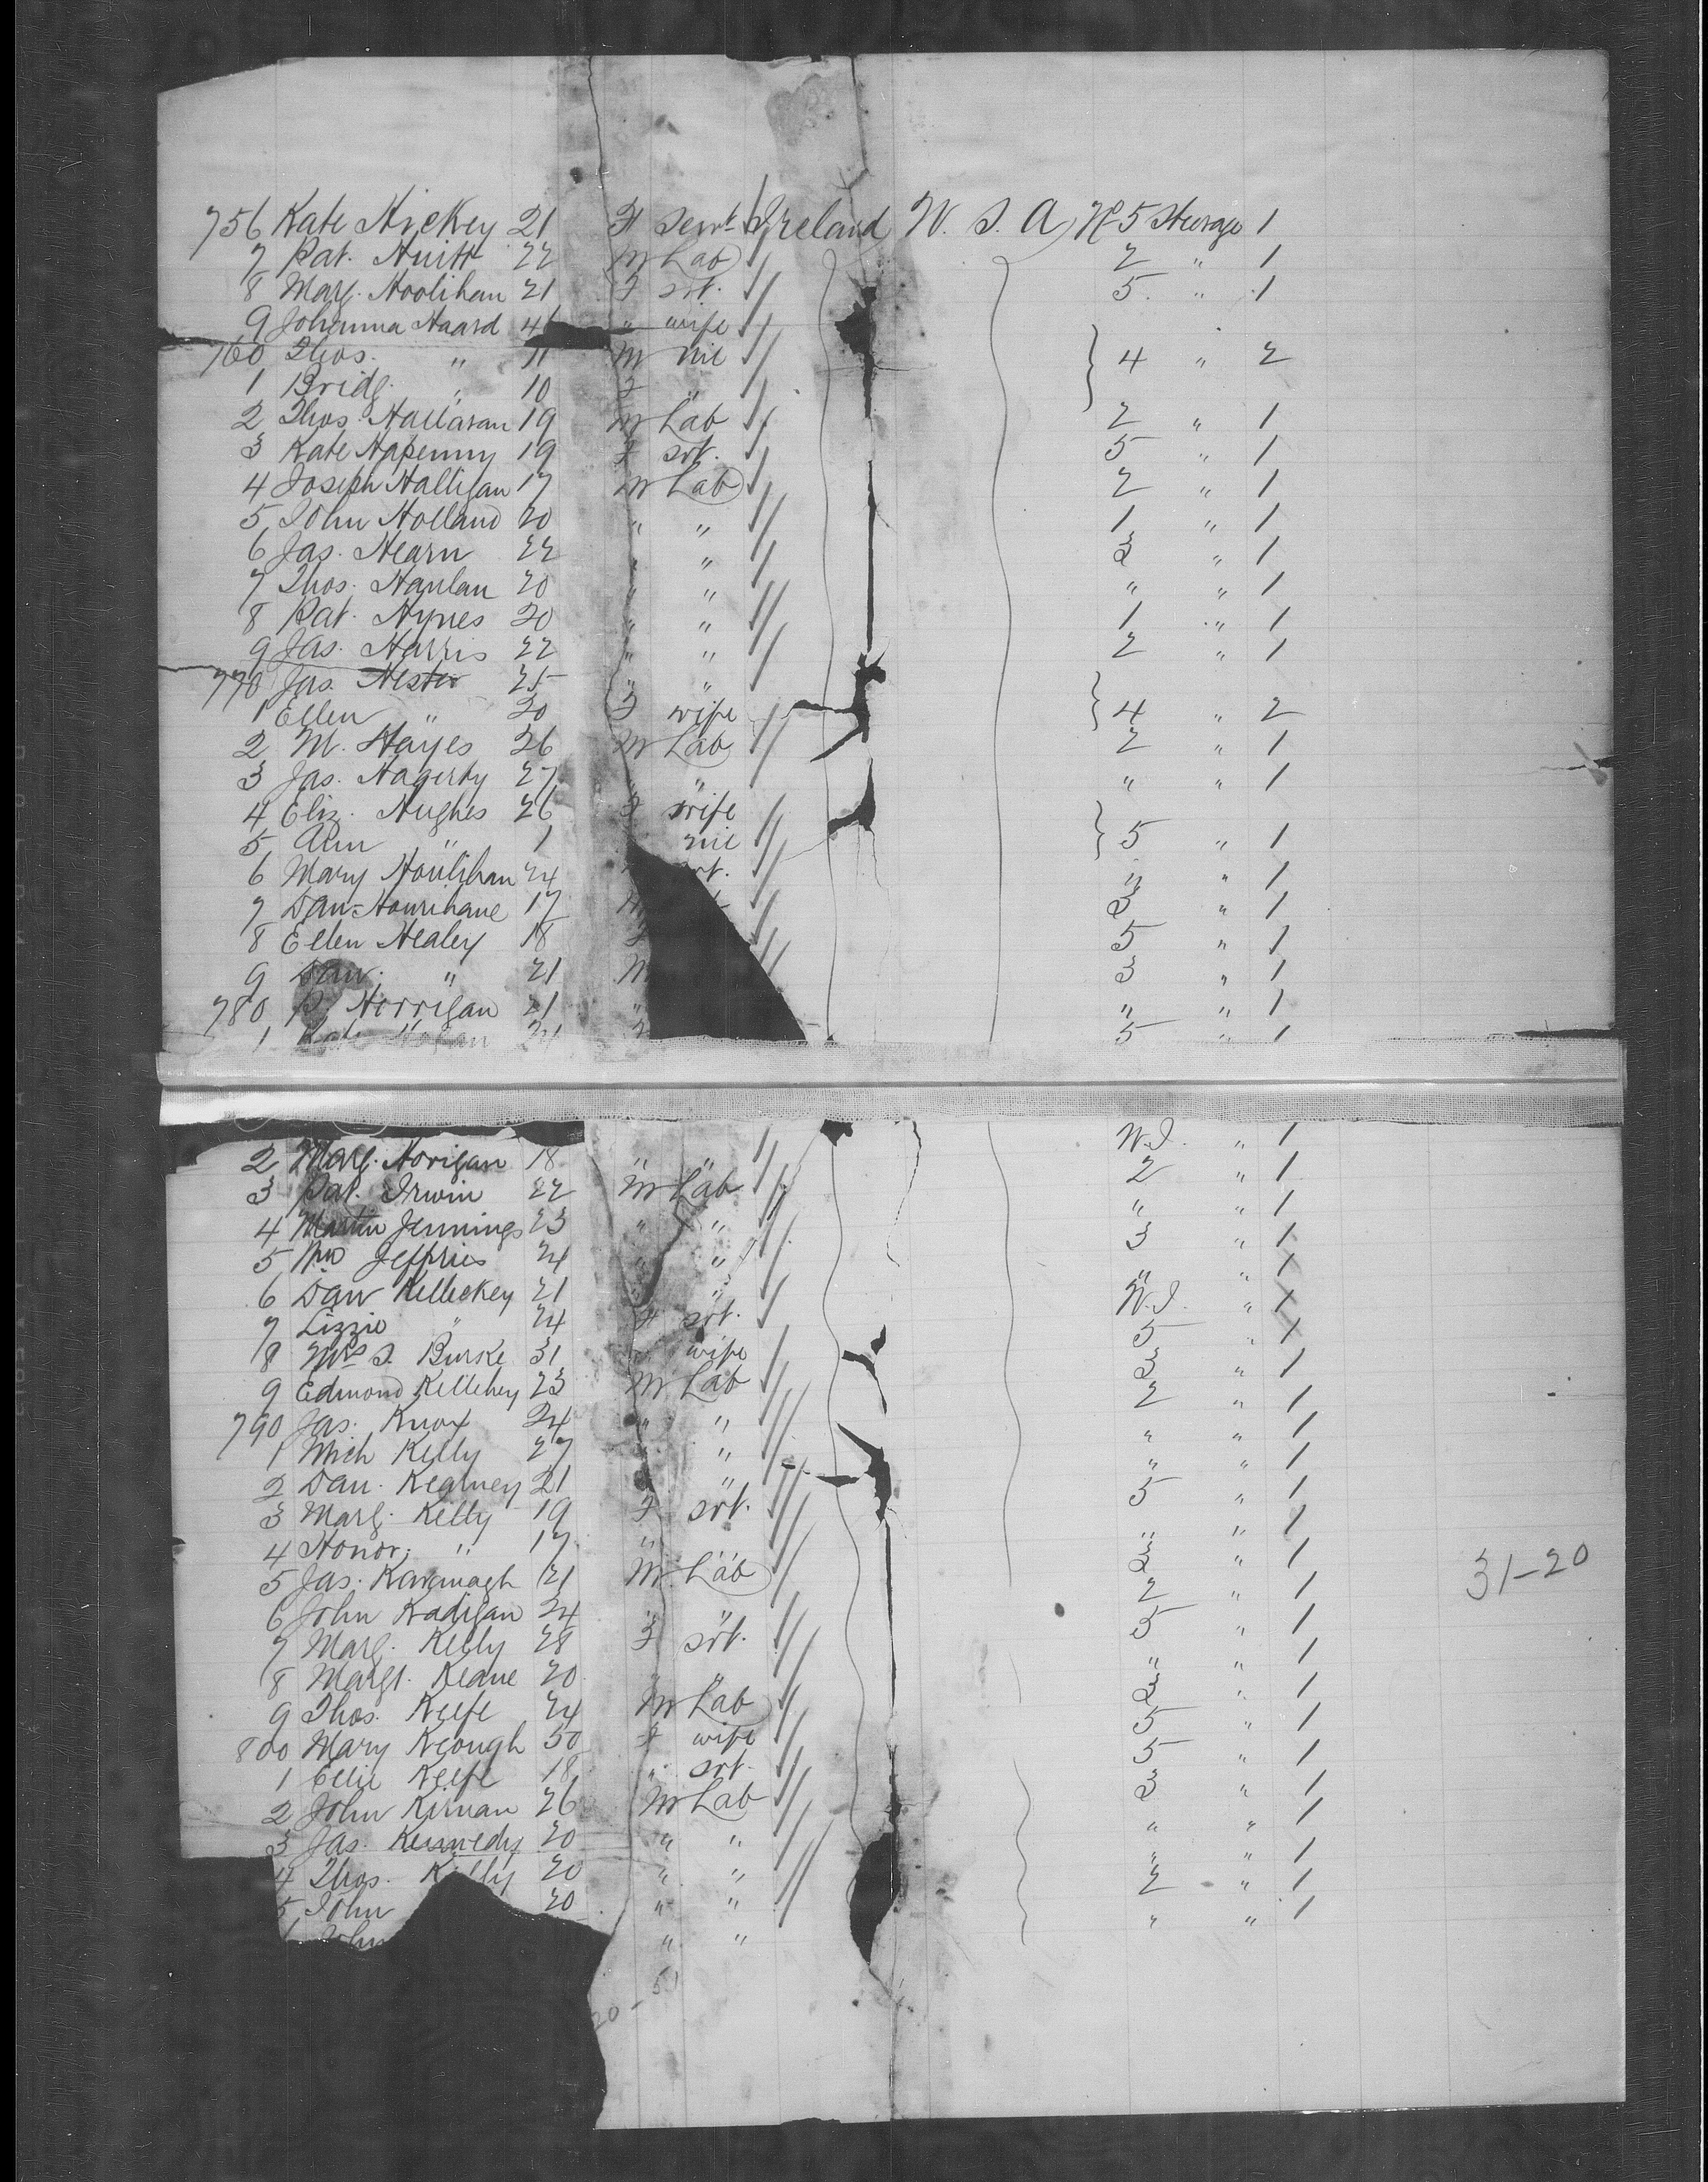 756 Kate Hickey 21 F Servt Ireland U. S. A No 5 Steerage 1
7 Pat. Hewitt 22 M Lab 2 " 1
8 Marg. Hoolihan 21 F svt. 5 " 1
9 Johanna Haard 4 " wife
760 Thos. " 11 M nil } 4 " 2
1 Bridg. " 10 F "
2 Thos. Hallaran 19 M Lab 2 " 1
3 Kate Hapenny 19 F svt. 5 " 1
4 Joseph Halligan 17 M Lab 2 " 1
5 John Holland 20 " " 1 " 1
6 Jas. Hearn 22 " " 3 " 1
7 Thos. Hanlan 20 " " " " 1
8 Pat. Hynes 20 " " 1 " 1
9 Jas. Harris 22 " " 2 " 1
770 Jas. Hester 25 " "
1 Ellen " 20 F wife } 4 " 2
2 M. Hayes 26 M Lab 2 " 1
3 Jas. Hagerty 27 " " " " 1
4 Eliz. Hughes 26 F wife
5 Ann " 1 nil } 5 " 1
6 Mary Houlihan 24 svt. " " 1
7 Dan Hourihane 17 M 3 " 1
8 Ellen Healey 18 F 5 " 1
9 Dan. " 21 M 3 " 1
780 P. Horrigan 21 " " " 1
1 Kate Hogan 24 F 5 " 1
2 Marg. Horigan 18 " " W.I. " 1
3 Pat. Irwin 22 M Lab 2 " 1
4 Martin Jennings 23 " " " " 1
5 Wm Jeffries 24 " " 3 " 1
6 Dan Kellickey 21 " " " " 1
7 Lizzie " 24 F svt. W.I. " 1
8 Mrs J. Burke 31 " wife 5 " 1
9 Edmond Kellehey 23 M Lab 3 " 1
790 Jas. Knox 24 " " 2 " 1
1 Mich Kelly 27 " " " " 1
2 Dan. Kearney 21 " " " " 1
3 Marg. Kelly 19 F svt. 5 " 1
4 Honor. " 17 " " " " 1
5 Jas. Kavanagh 21 M Lab 3 " 1 31-20
6 John Kadigan 24 " " 2 " 1
7 Marg. Kelly 28 F svt. 5 " 1
8 Margt. Keane 20 " " " " 1
9 Thos. Keefe 24 M Lab 3 " 1
800 Mary Keough 50 F wife 5 " 1
1 Ellie Keefe 18 " svt. 5 " 1
2 John Kernan 26 M Lab 3 " 1
3 Jas. Kennedy 20 " " " " 1
4 Thos. Kelly 20 " " " " 1
5 John 20 " " 2 " 1
John " " " " 1
20-51